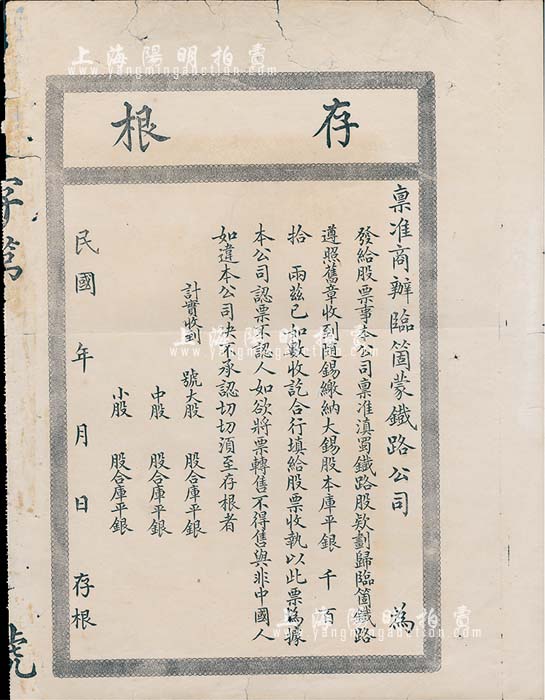 存根
稟准商辦臨箇蒙鐵路公司 為
發給股票事本公司稟准滇蜀鐵路股欵劃歸臨箇鐵路
遵照舊章收到隨錫繳納大錫股本庫平銀 千 百
拾 兩茲已如數收訖合行填給股票收執以此票為據
本公司認票不認人如欲將票轉售不得售與非中國人
如違本公司決不承認切切須至存根者
計實收到 號大股 股合庫平銀
中股 股合庫平銀
小股 股合庫平銀
民國 年 月 日 存根
字第 號
上海陽明拍賣
www.yangmingauction.com
上海陽明拍賣
www.yangmingauction.com
上海陽明拍賣
www.yangmingauction.com